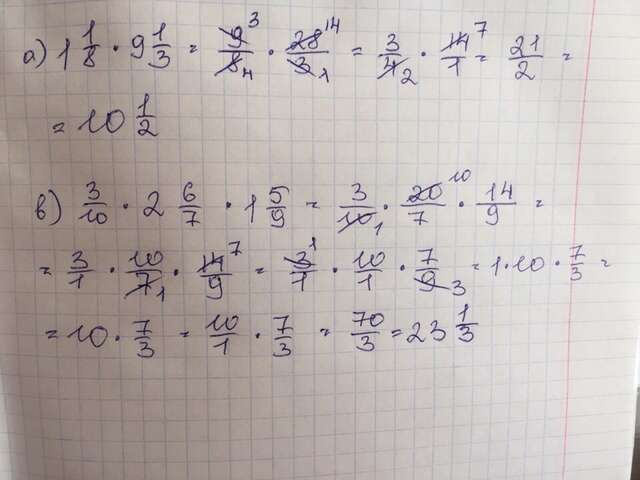 а) 1 1/8 · 9 1/3 = 9 3/8 4 · 28 14/3 1 = 3/4 2 · 14 7/1 = 21/2 =
= 10 1/2
в) 3/10 · 2 6/7 · 1 5/9 = 3/10 1 · 20 10/7 · 14/9 =
= 3/1 · 10/7 1 · 14 7/9 = 3 1/1 · 10/1 · 7/9 3 = 1 · 10 · 7/3 =
= 10 · 7/3 = 10/1 · 7/3 = 70/3 = 23 1/3